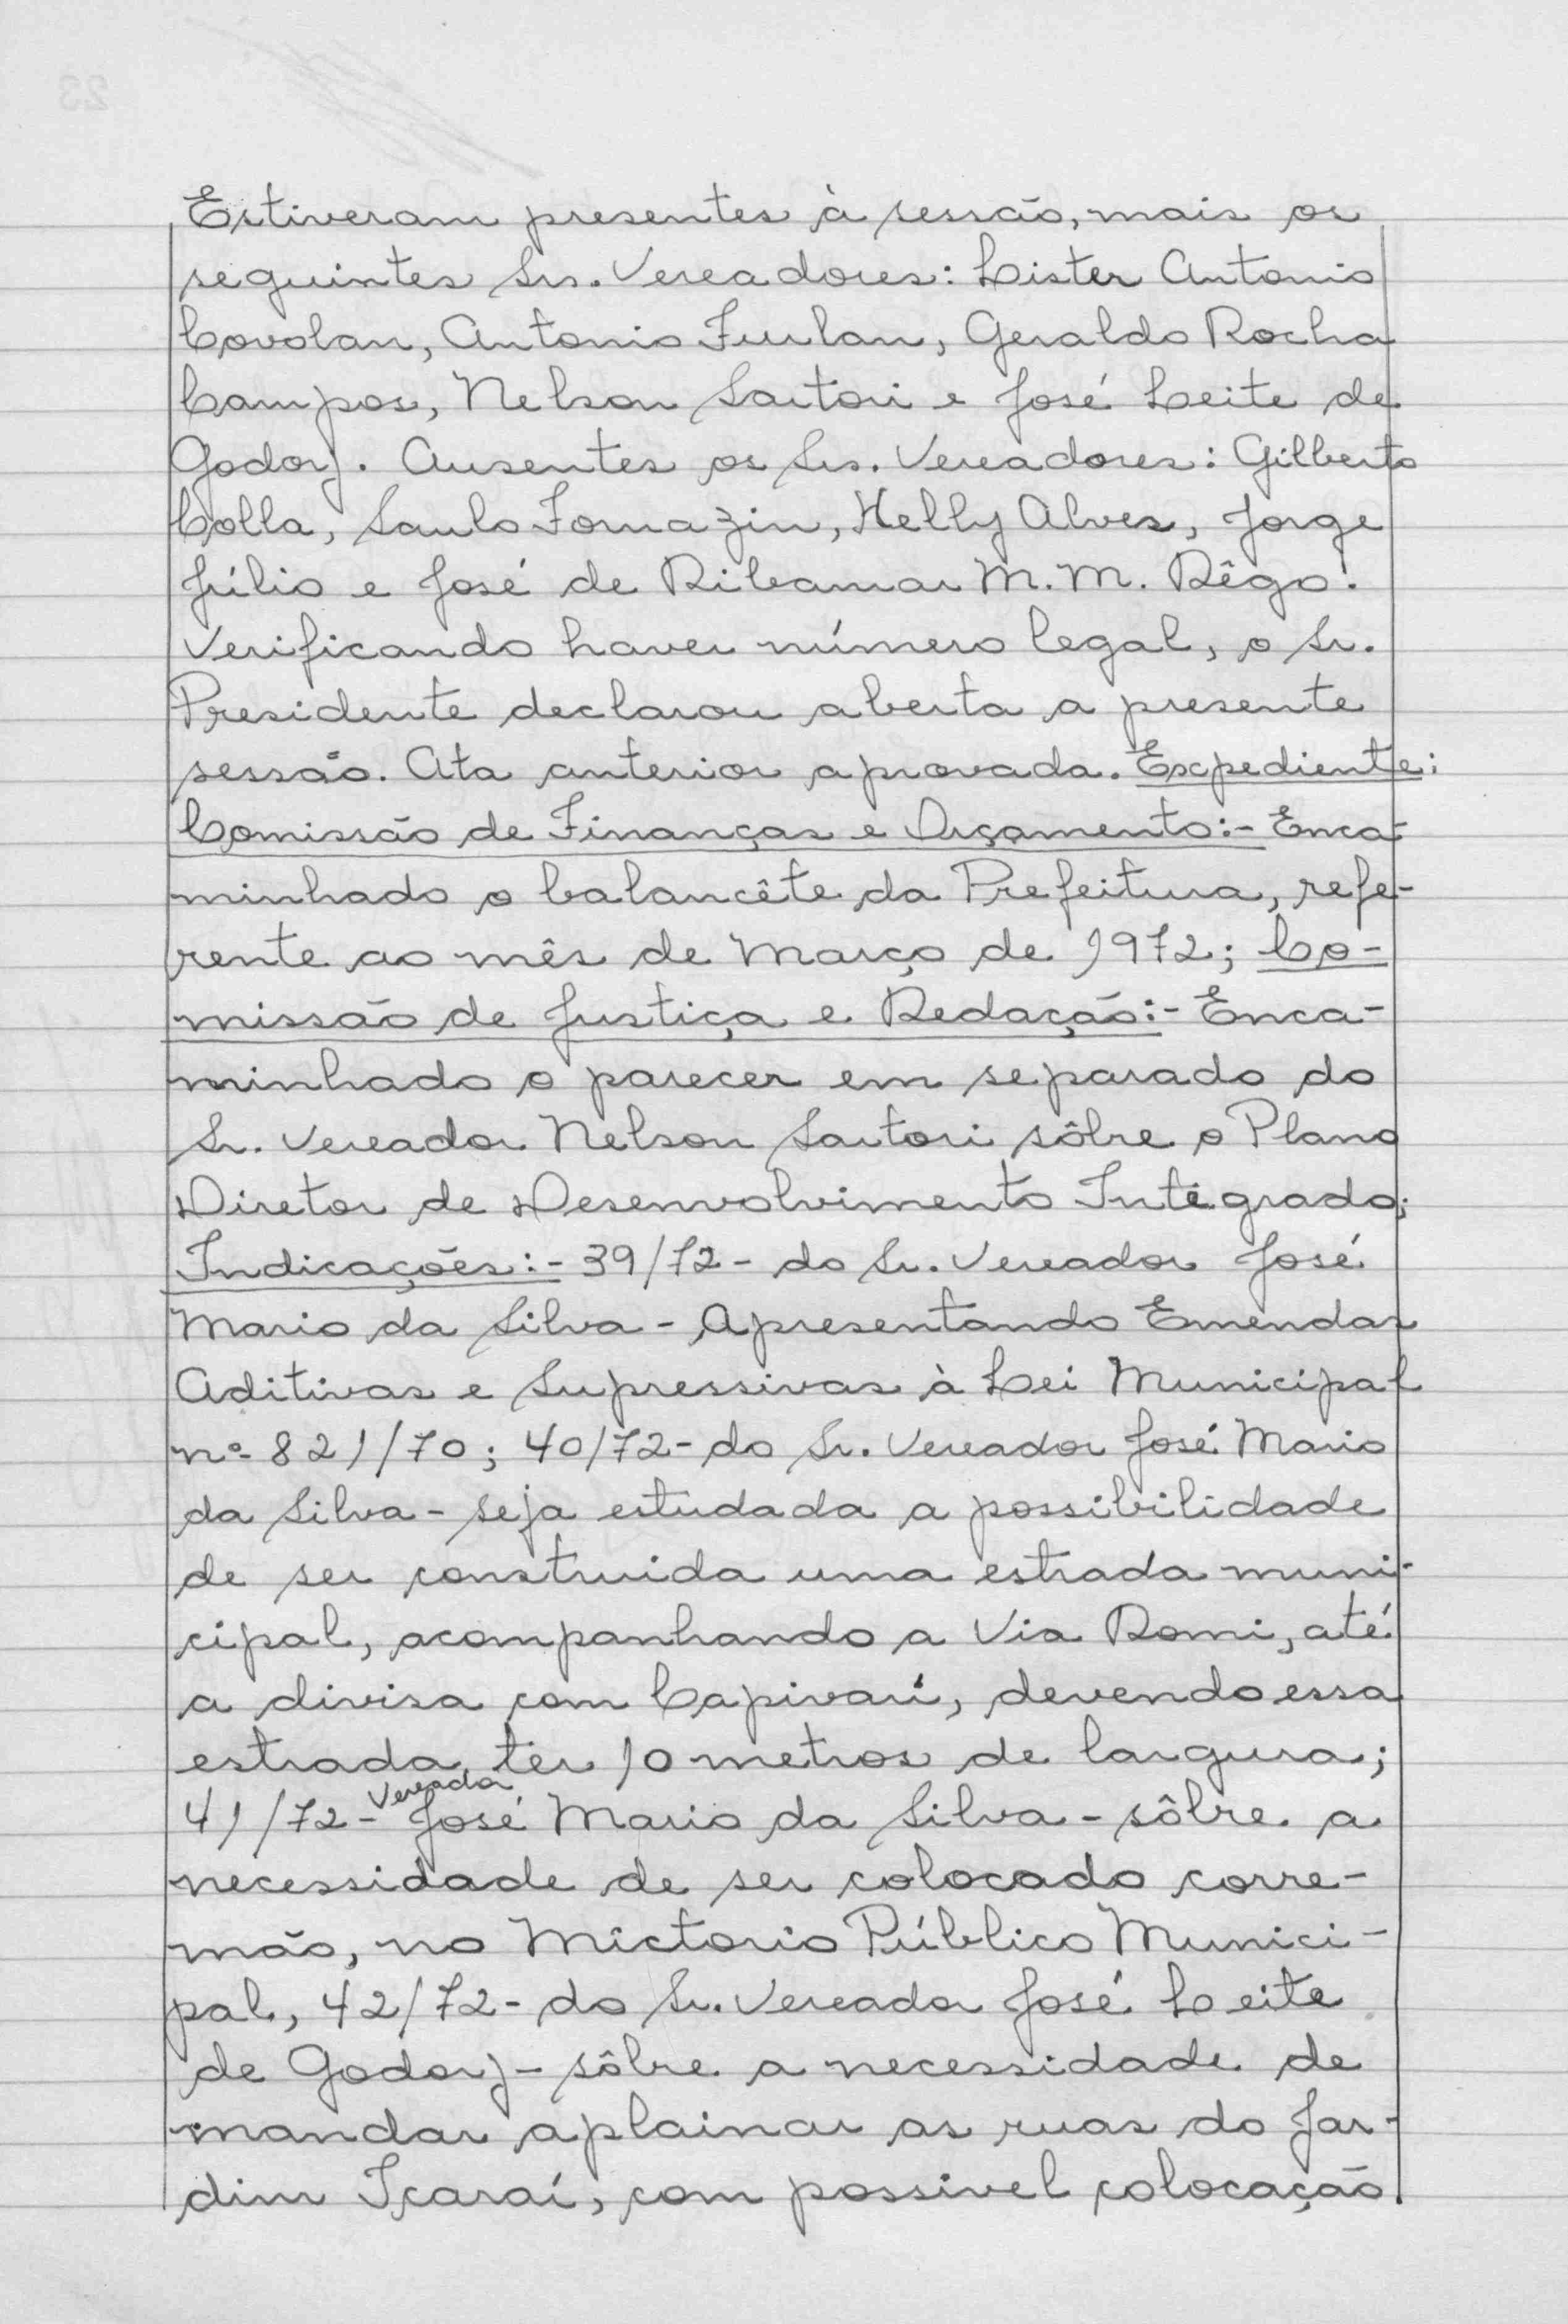 Estiveram presentes à sessão, mais os
seguintes Srs. Vereadores: Lister Antonio
Covolan, Antonio Furlan, Geraldo Rocha
Campos, Nelson Sartori e José Leite de
Godoy. Ausentes os Srs. Vereadores: Gilberto
Colla, Saulo Fornazin, Helly Alves, Jorge
Júlio e José de Ribamar M. M. Rêgo.
Verificando haver número legal, o Sr.
Presidente declarou aberta a presente
sessão. Ata anterior aprovada. Expediente:
Comissão de Finanças e Orçamento:- Enca-
minhado o balancête da Prefeitura, refe-
rente ao mês de Março de 1972; Co-
missão de Justiça e Redação:- Enca-
minhado o parecer em separado do
Sr. Vereador Nelson Sartori sôbre o Plano
Diretor de Desenvolvimento Integrado;
Indicações:- 39/72- do Sr. Vereador José
Mario da Silva - Apresentando Emendas
Aditivas e Supressivas à Lei Municipal
nº 821/70; 40/72- do Sr. Vereador José Mario
da Silva - seja estudada a possibilidade
de ser construida uma estrada muni-
cipal, acompanhando a Via Romi, até
a divisa com Capivarí, devendo essa
estrada ter 10 metros de largura;
41/72- Vereador José Mario da Silva - sôbre a
necessidade de ser colocado corre-
mão, no Mictorio Público Munici-
pal, 42/72- do Sr. Vereador José Leite
de Godoy - sôbre a necessidade de
mandar aplainar as ruas do Jar-
dim Içaraí, com possivel colocação